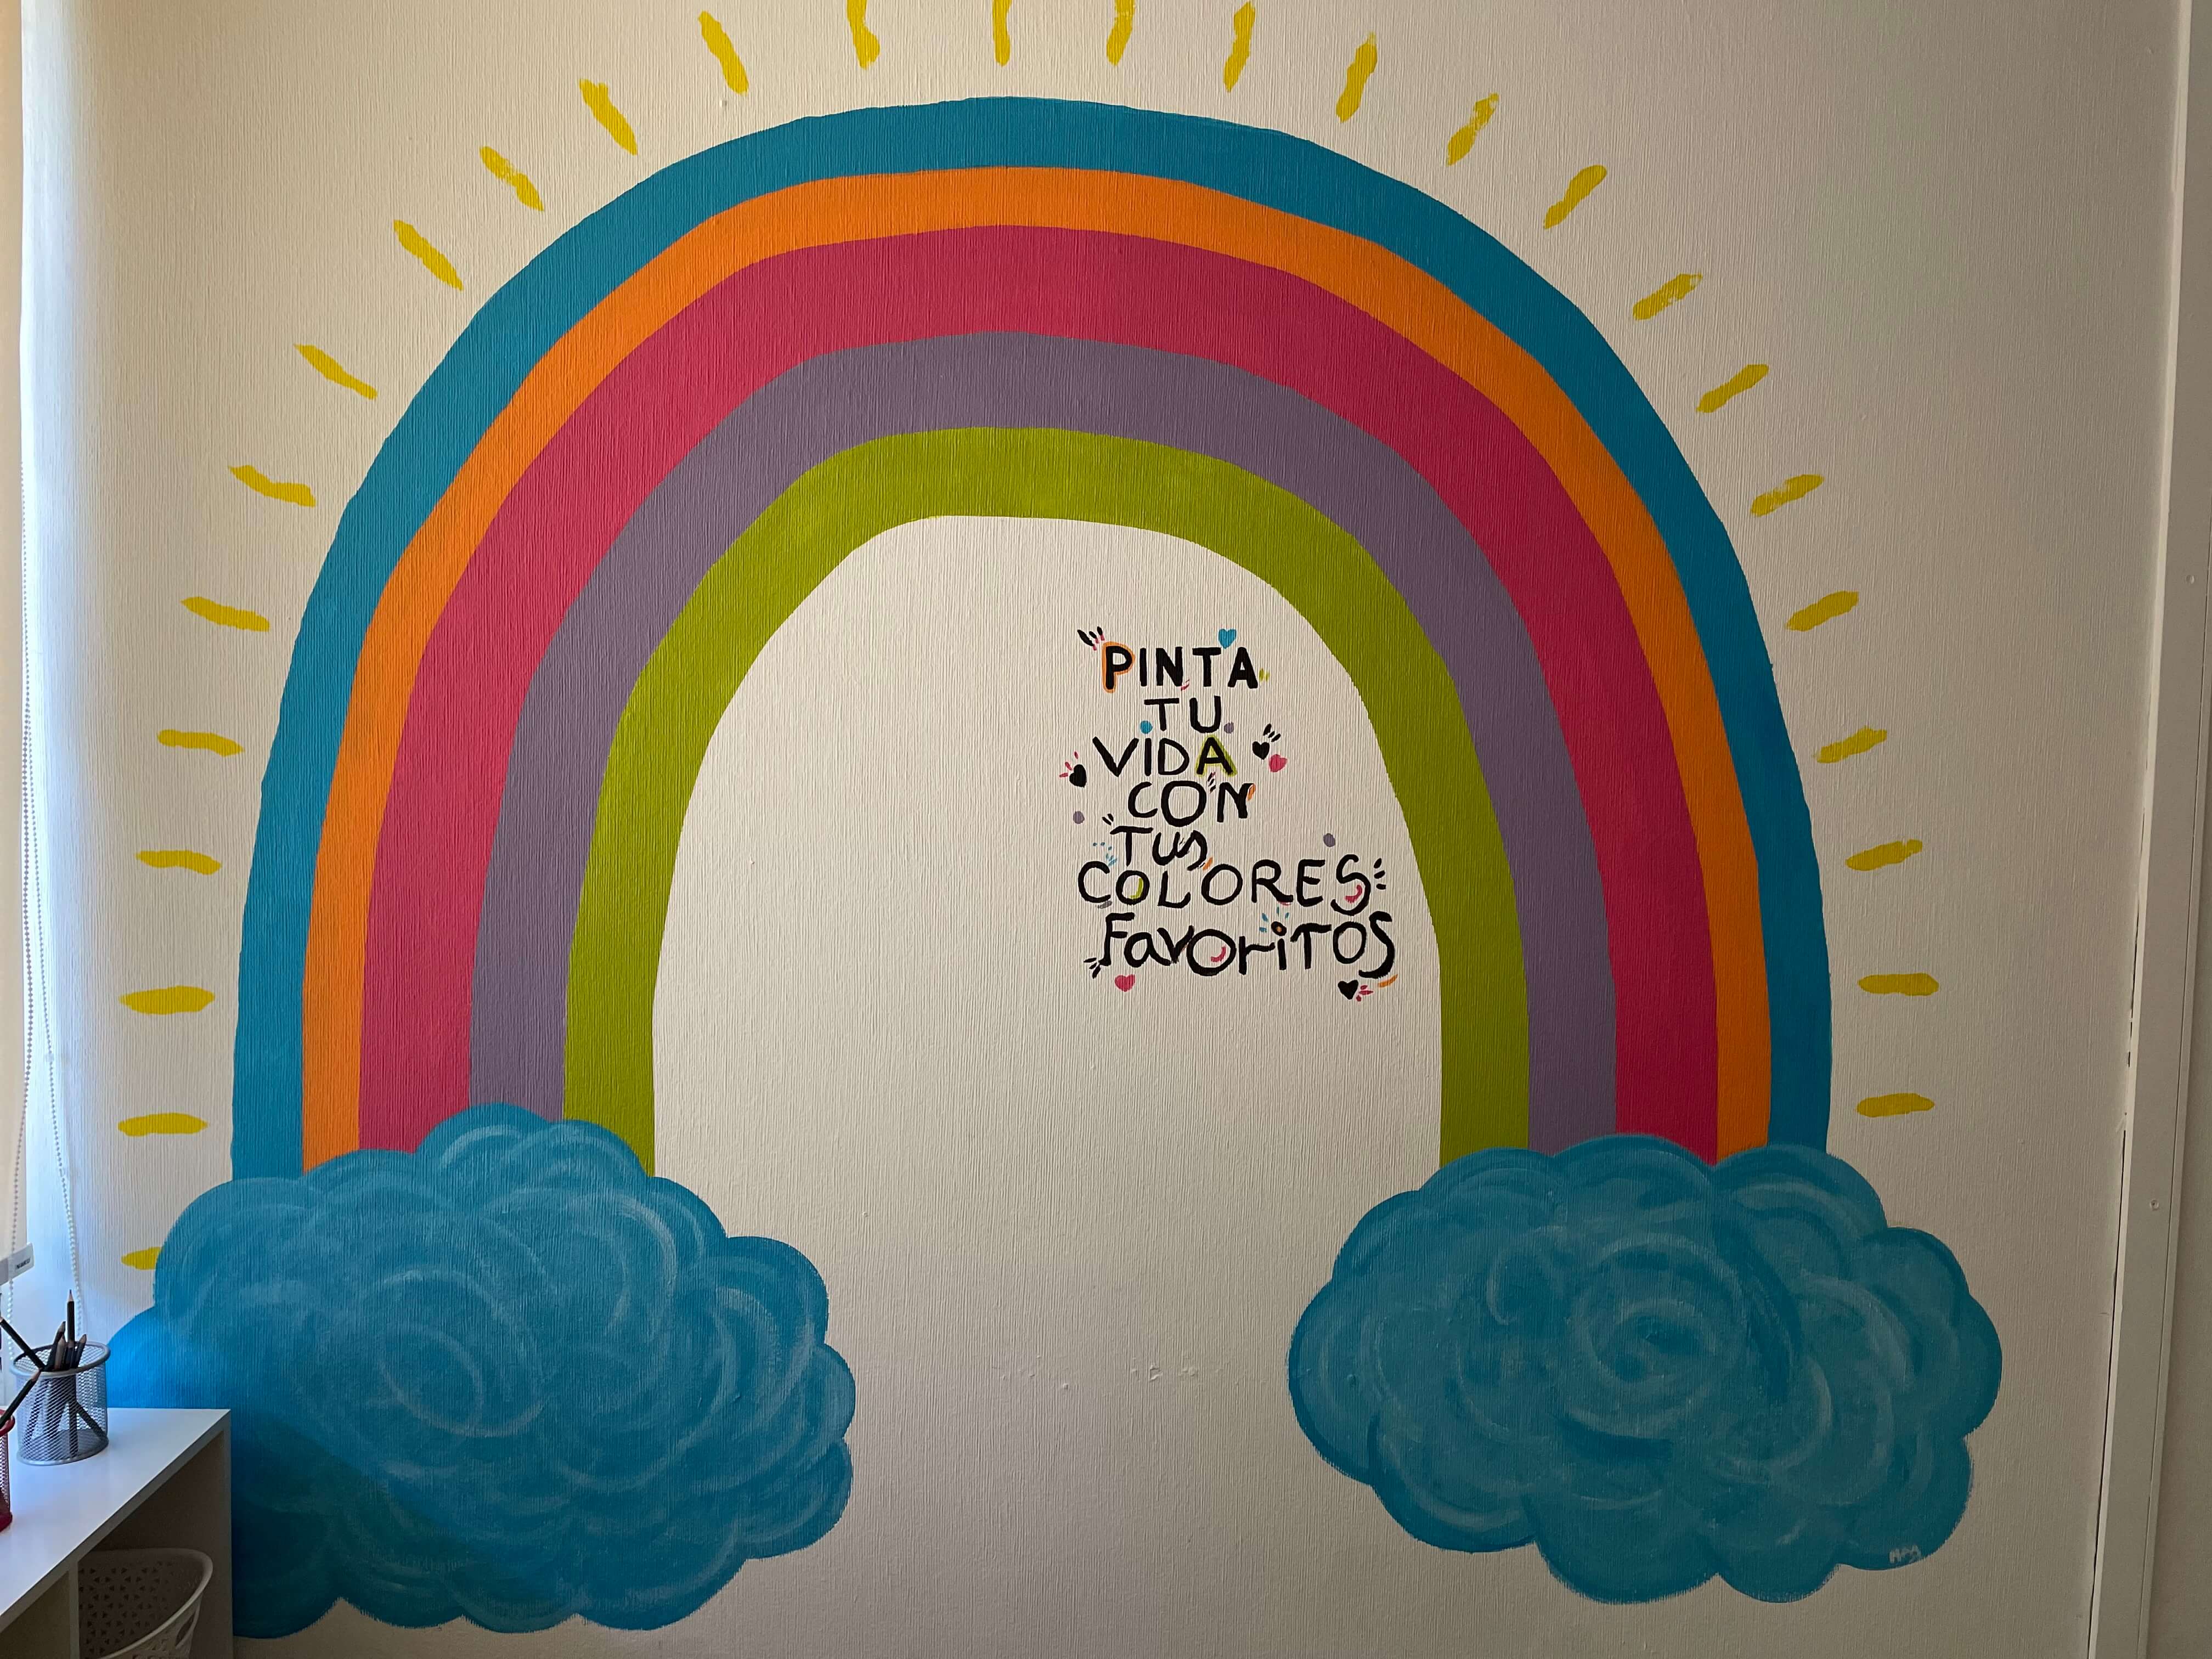 PINTA
TU
VIDA
CON
TUS
COLORES
FavoriTOS